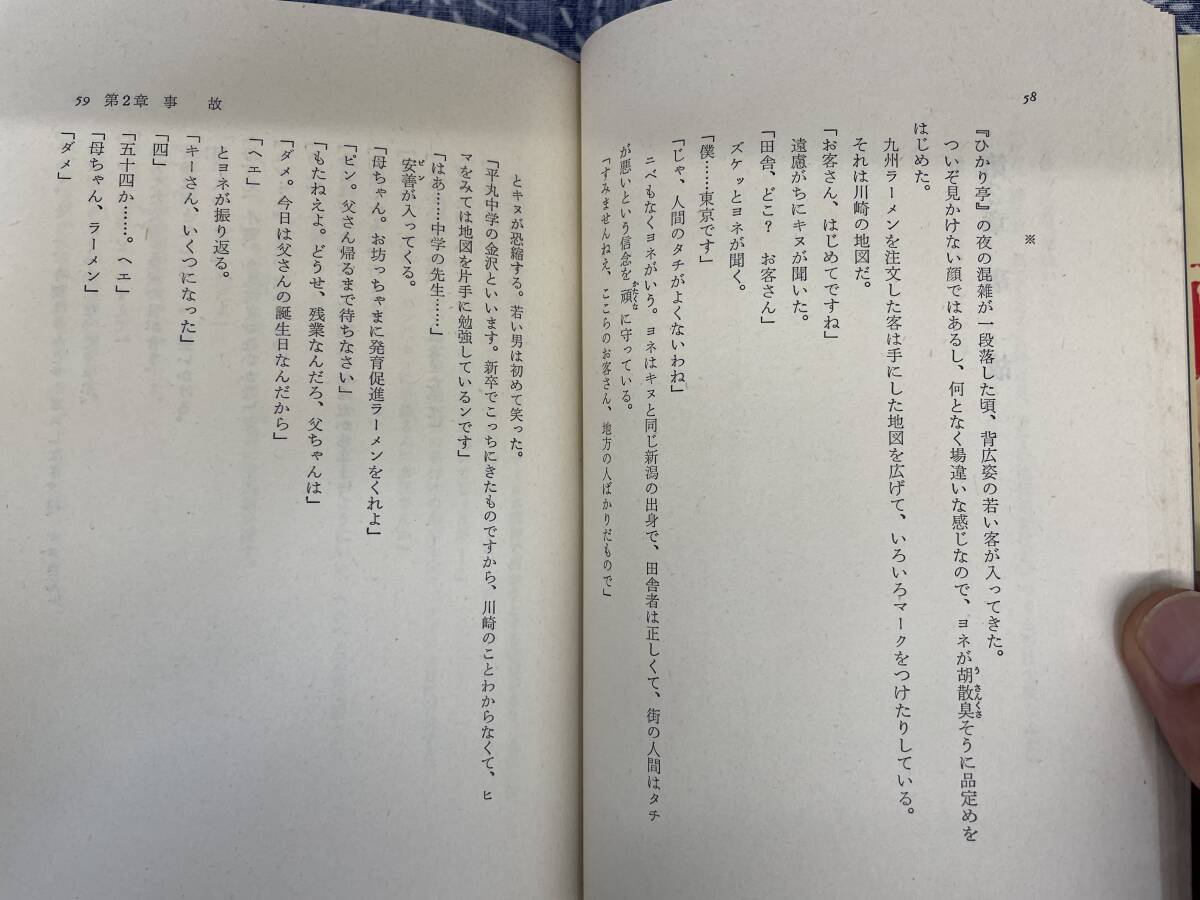 58
※
『ひかり亭』の夜の混雑が一段落した頃、背広姿の若い客が入ってきた。
ついぞ見かけない顔ではあるし、何となく場違いな感じなので、ヨネが胡散臭そうに品定めを
はじめた。
九州ラーメンを注文した客は手にした地図を広げて、いろいろマークをつけたりしている。
それは川崎の地図だ。
「お客さん、はじめてですね」
遠慮がちにキヌが聞いた。
「田舎、どこ？　お客さん」
ズケッとヨネが聞く。
「僕……東京です」
「じゃ、人間のタチがよくないわね」
ニベもなくヨネがいう。ヨネはキヌと同じ新潟の出身で、田舎者は正しくて、街の人間はタチ
が悪いという信念を頑に守っている。
「すみませんねえ、ここらのお客さん、地方の人ばかりだもので」
59　第2章　事　故
とキヌが恐縮する。若い男は初めて笑った。
「平丸中学の金沢といいます。新卒でこっちにきたものですから、川崎のことわからなくて、ヒ
マをみては地図を片手に勉強しているンです」
「はあ……中学の先生……」
安善が入ってくる。
「母ちゃん。お坊っちゃまに発育促進ラーメンをくれよ」
「ピン。父さん帰るまで待ちなさい」
「もたねえよ。どうせ、残業なんだろ、父ちゃんは」
「ダメ。今日は父さんの誕生日なんだから」
「ヘエ」
とヨネが振り返る。
「キーさん、いくつになった」
「四」
「五十四か……。ヘエ」
「母ちゃん、ラーメン」
「ダメ」